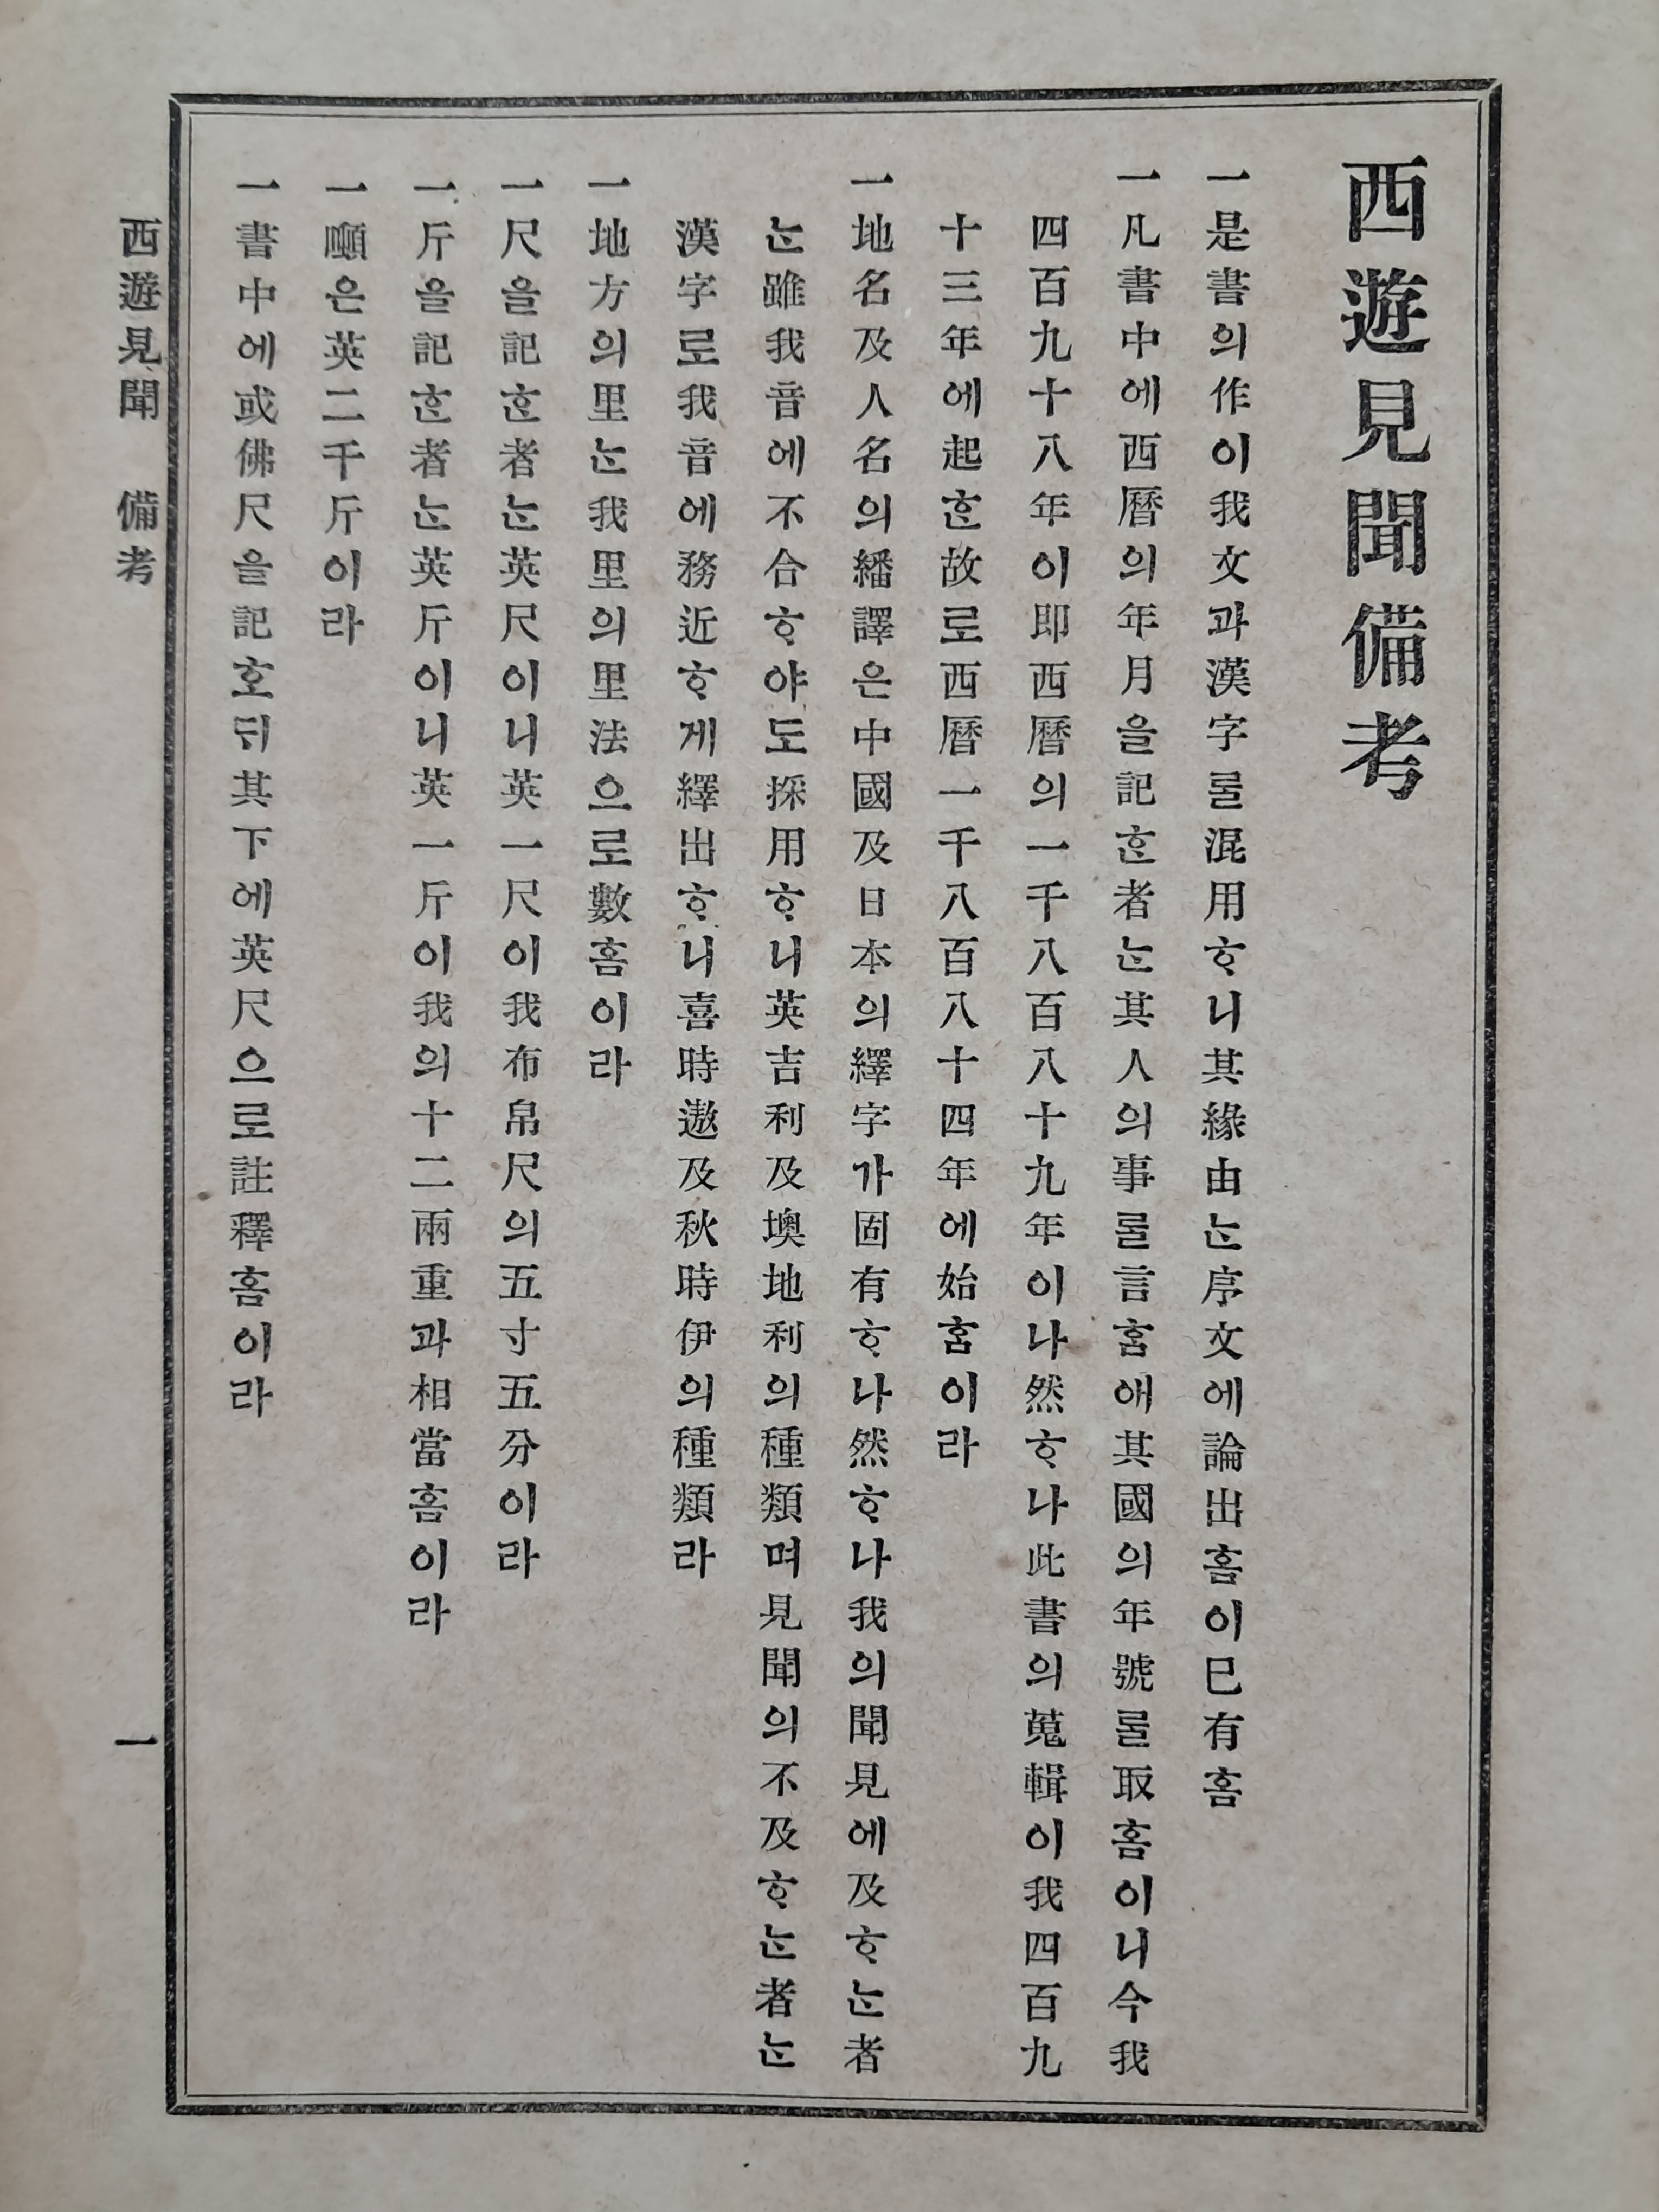 西遊見聞備考
一是書의作이我文과漢字ᄅᆞᆯ混用ᄒᆞ니其緣由ᄂᆞᆫ序文에論出홈이已有홈
一凡書中에西曆의年月을記ᄒᆞᆫ者ᄂᆞᆫ其人의事ᄅᆞᆯ言홈애其國의年號ᄅᆞᆯ取홈이니今我
四百九十八年이即西曆의一千八百八十九年이나然ᄒᆞ나此書의蒐輯이我四百九
十三年에起ᄒᆞᆫ故로西曆一千八百八十四年에始홈이라
一地名及人名의繙譯은中國及日本의繹字가固有ᄒᆞ나然ᄒᆞ나我의聞見에及ᄒᆞᄂᆞᆫ者
ᄂᆞᆫ雖我音에不合ᄒᆞ야도採用ᄒᆞ니英吉利及墺地利의種類며見聞의不及ᄒᆞᄂᆞᆫ者ᄂᆞᆫ
漢字로我音에務近ᄒᆞ게繹出ᄒᆞ니喜時遨及秋時伊의種類라
一地方의里ᄂᆞᆫ我里의里法으로數홈이라
一尺을記ᄒᆞᆫ者ᄂᆞᆫ英尺이니英一尺이我布帛尺의五寸五分이라
一斤을記ᄒᆞᆫ者ᄂᆞᆫ英斤이니英一斤이我의十二兩重과相當홈이라
一噸은英二千斤이라
一書中에或佛尺을記호ᄃᆡ其下에英尺으로註釋홈이라
西遊見聞 備考 一